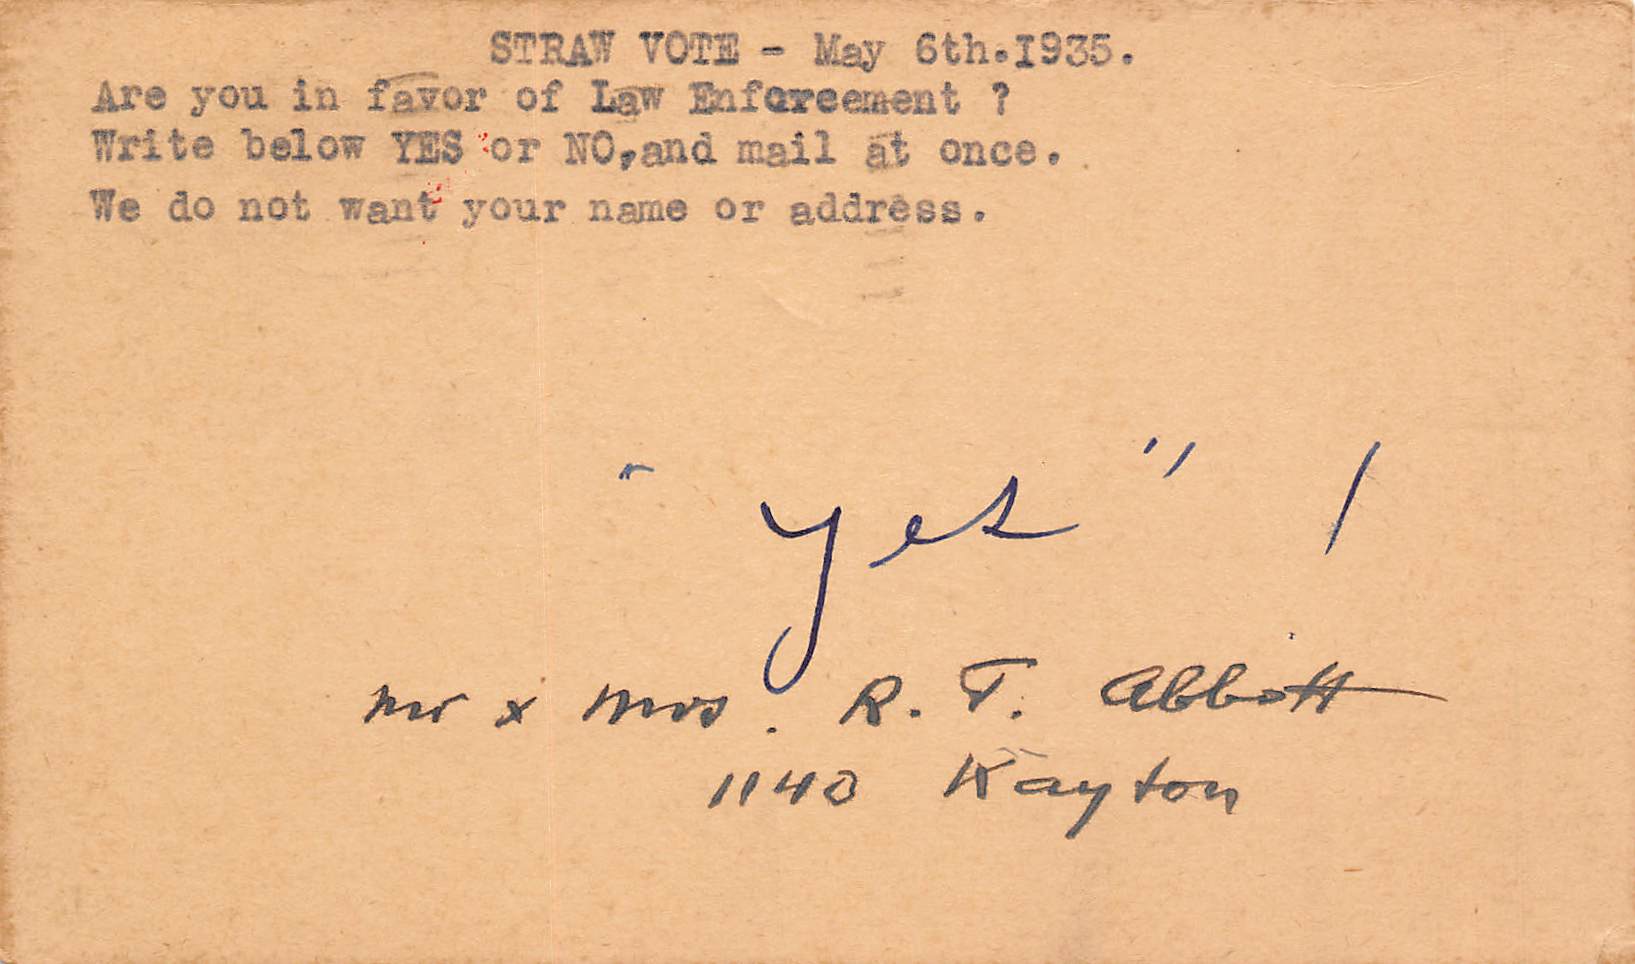 STRAW VOTE - May 6th.1935.
Are you in favor of Law Enforcement ?
Write below YES or NO,and mail at once.
We do not want your name or address.
"yes" !
Mr & Mrs. R. T. Abbott
1140 Kayton